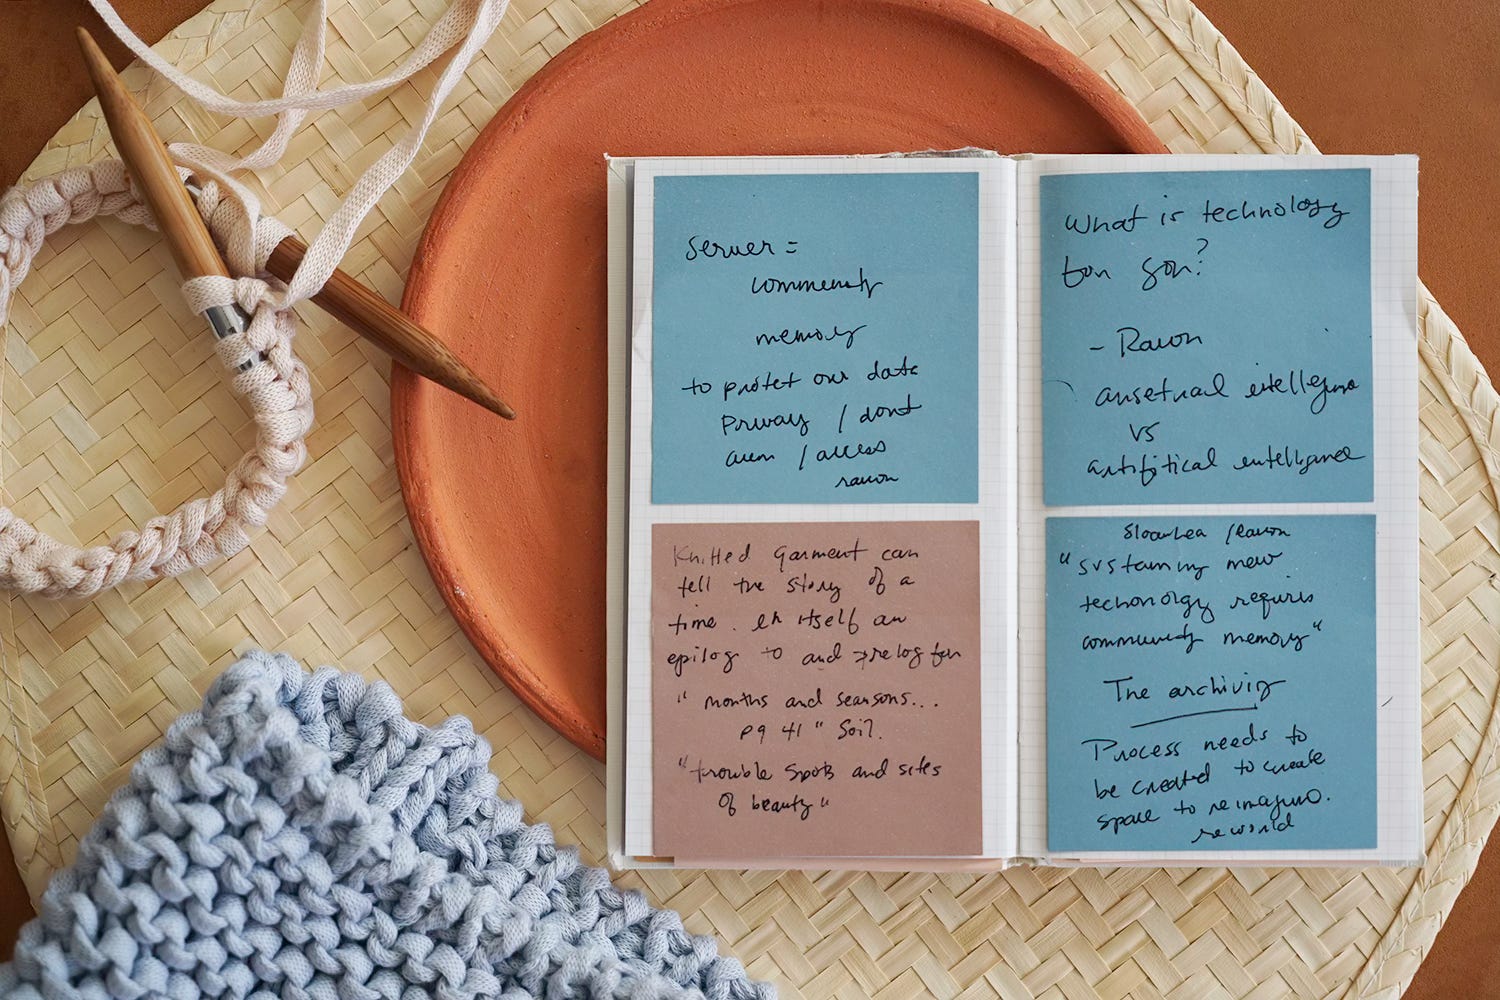 Server =
community
memory
to protet our data
Privacy / dont
/ access
ravon
Knitted garment can
tell the story of a
time. itself an
epilog to and prelog for
" months and seansons...
pg 41 " Soil.
"trouble spots and sites
of beauty"
What is technology
for you?
- Ravon
ansetrail intelligence
vs
artifitical entelligence
/ Ravon
"sustaining new
techonolgy requires
community memory"
The archiving
Process needs to
be created to create
space to reimagine.
reworld